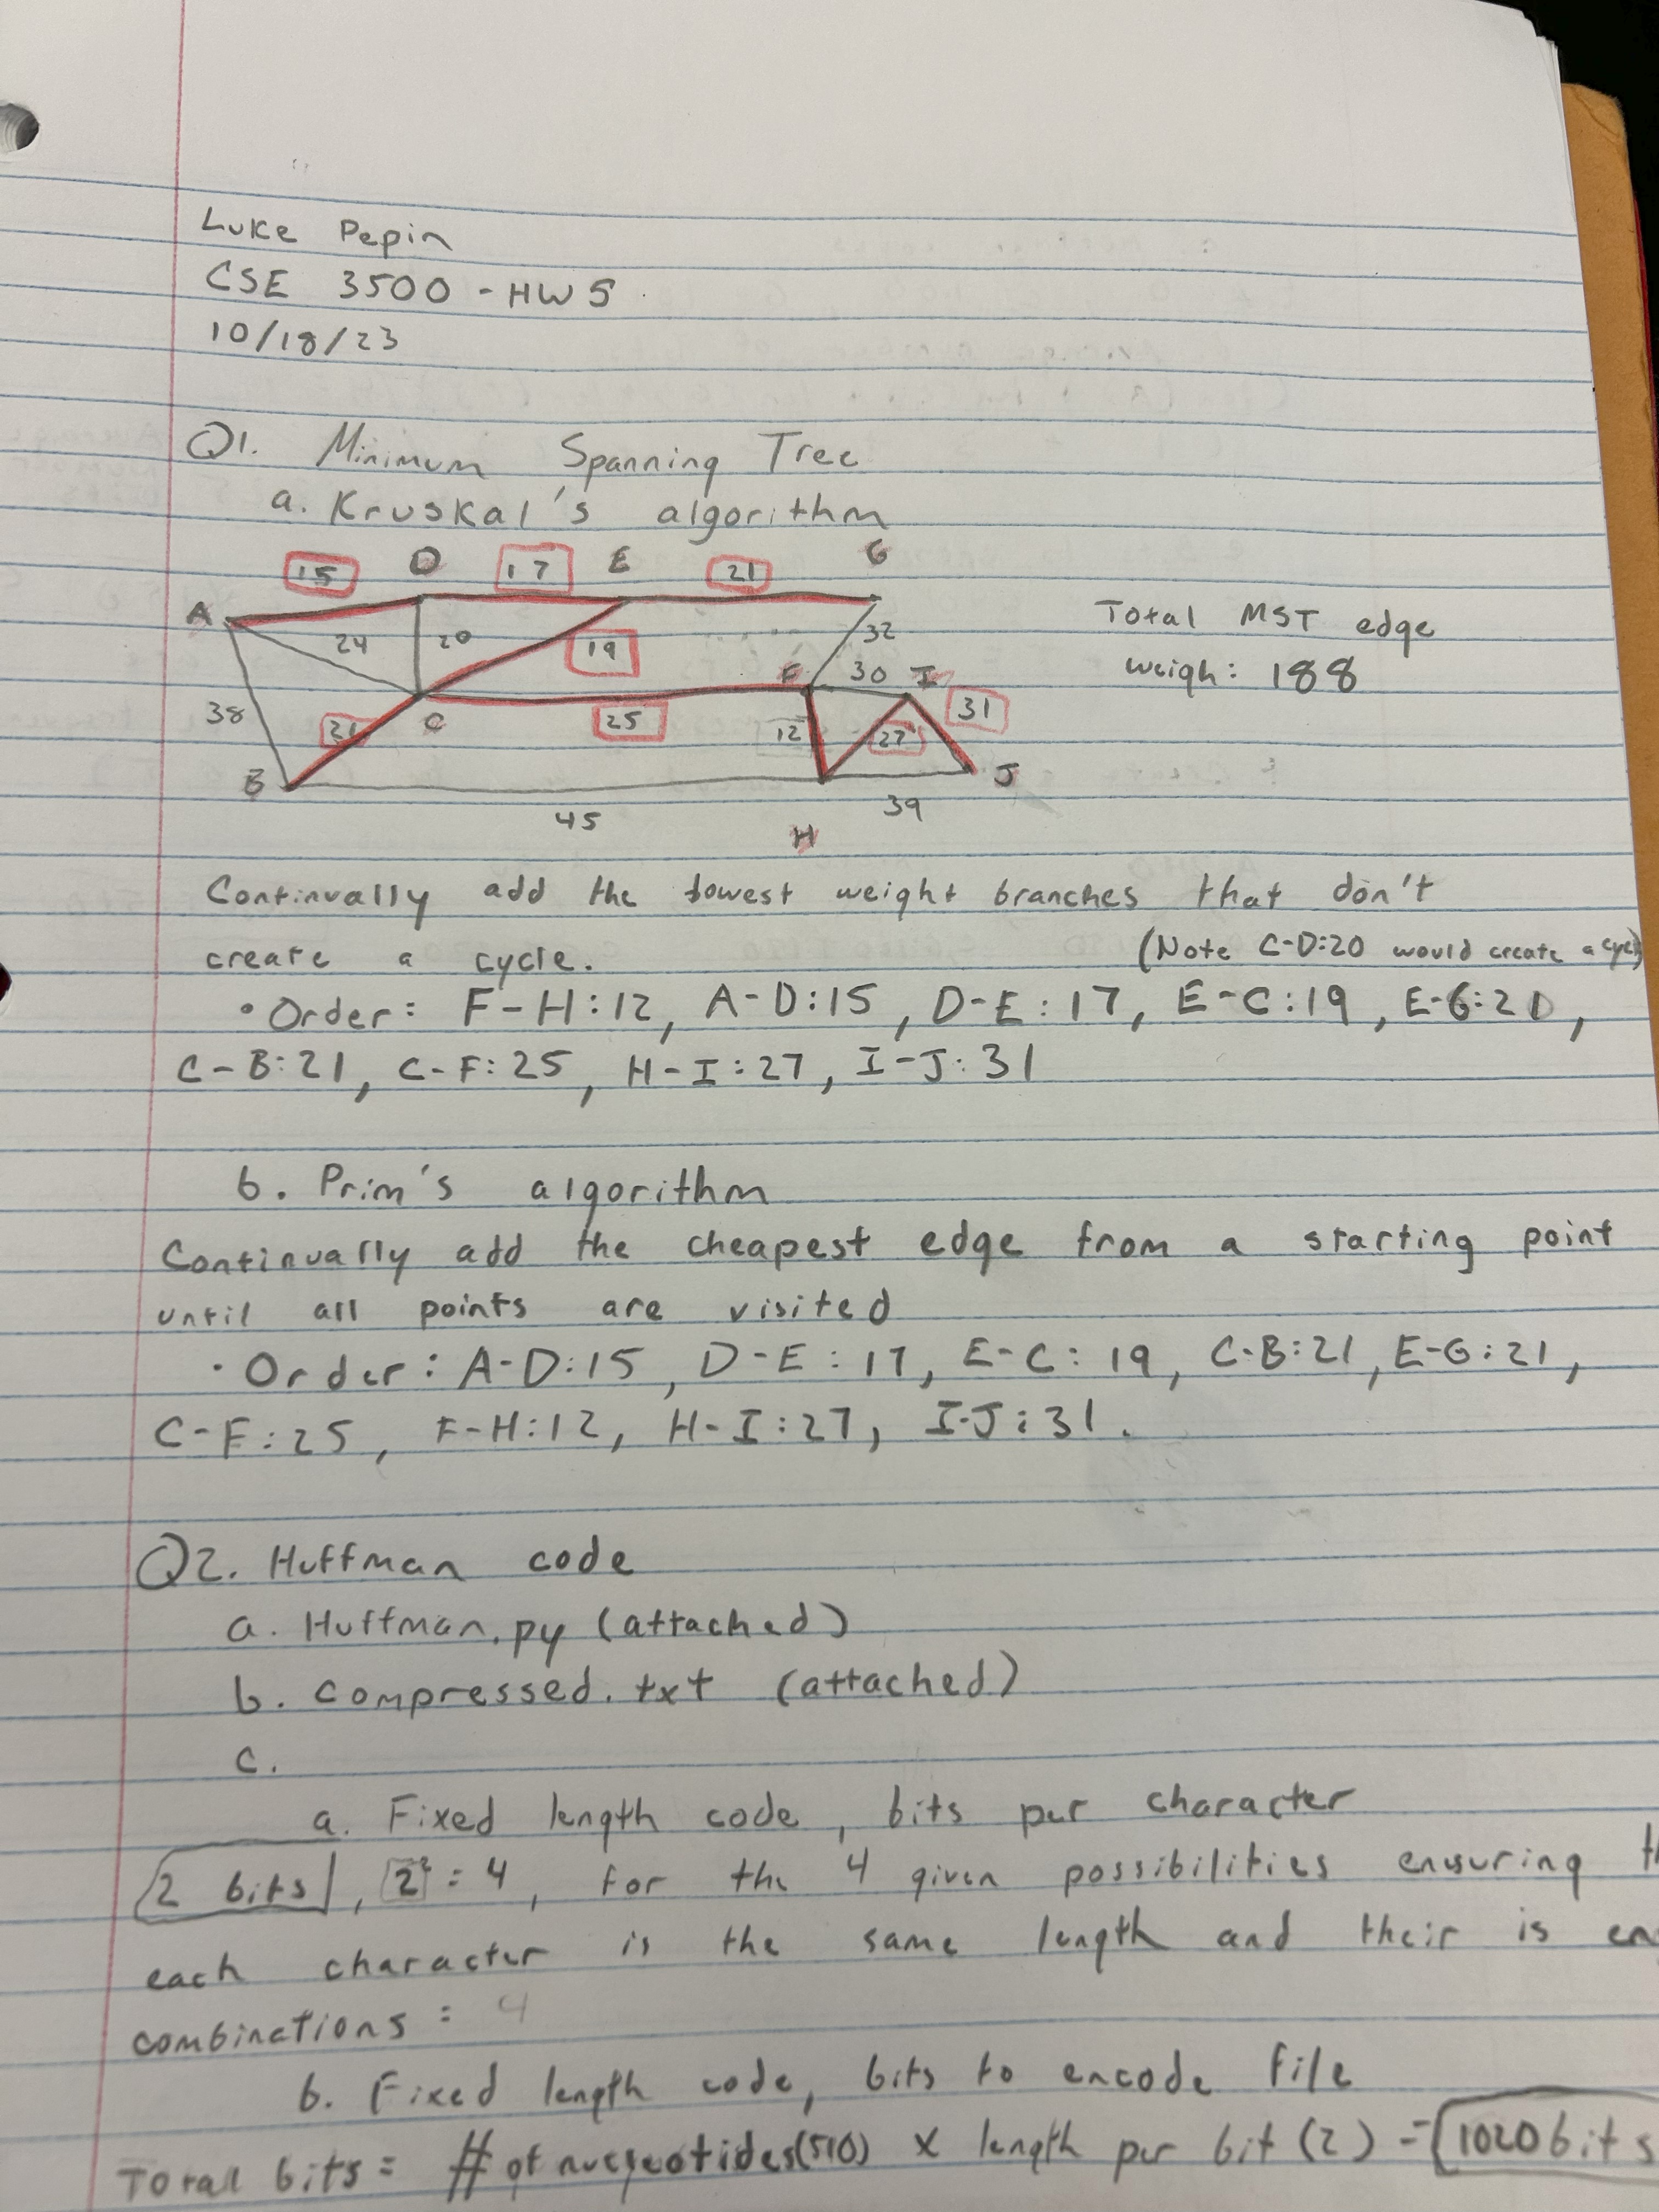 Luke Pepin
CSE 3500 - HW 5
10/18/23
Q1. Minimum Spanning Tree
a. Kruskal's algorithm
15 D 17 E 21 G
A 24 20 19 32
F 30 I
38 21 C 25 12 27 31
B 45 39 J
H
Total MST edge
weigh: 188
Continually add the lowest weight branches that don't
create a cycle. (Note C-D:20 would create a cycle)
• Order: F-H:12, A-D:15, D-E:17, E-C:19, E-G:21,
C-B:21, C-F:25, H-I:27, I-J:31
b. Prim's algorithm
Continually add the cheapest edge from a starting point
until all points are visited
• Order: A-D:15, D-E:17, E-C:19, C-B:21, E-G:21,
C-F:25, F-H:12, H-I:27, I-J:31.
Q2. Huffman code
a. Huffman.py (attached)
b. compressed.txt (attached)
c.
a. Fixed length code, bits per character
2 bits, 2² = 4, for the 4 given possibilities ensuring
each character is the same length and their is
combinations = 4
b. Fixed length code, bits to encode file
Total bits = # of nucleotides(510) x length per bit (2) = 1020 bits